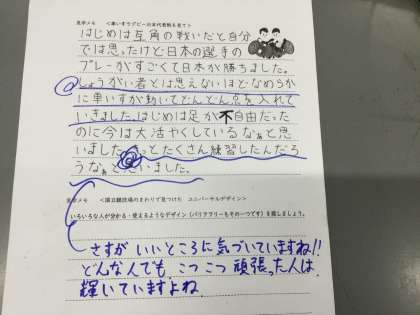 見学メモ <車いすラグビーの日本代表戦を見て>
はじめは互角の戦いだと自分
では思ったけど日本の選手の
プレーがすごくて日本が勝ちました。
しょうがい者とは思えないほどなめらか
に車いすが動いてどんどん点を入れて
いきました。はじめは足が不自由だった
のに今は大活やくしているなぁと思
いました。きっとたくさん練習したんだろ
うなぁと思いました。
見学メモ <国立競技場のまわりで見つけた ユニバーサルデザイン>
いろいろな人が分かる・使えるようなデザイン(バリアフリーもその一つです)を探しましょう。
さすが いいところに気づいていますね!!
どんな人でも、こつこつ頑張った人は
輝いていますよね。